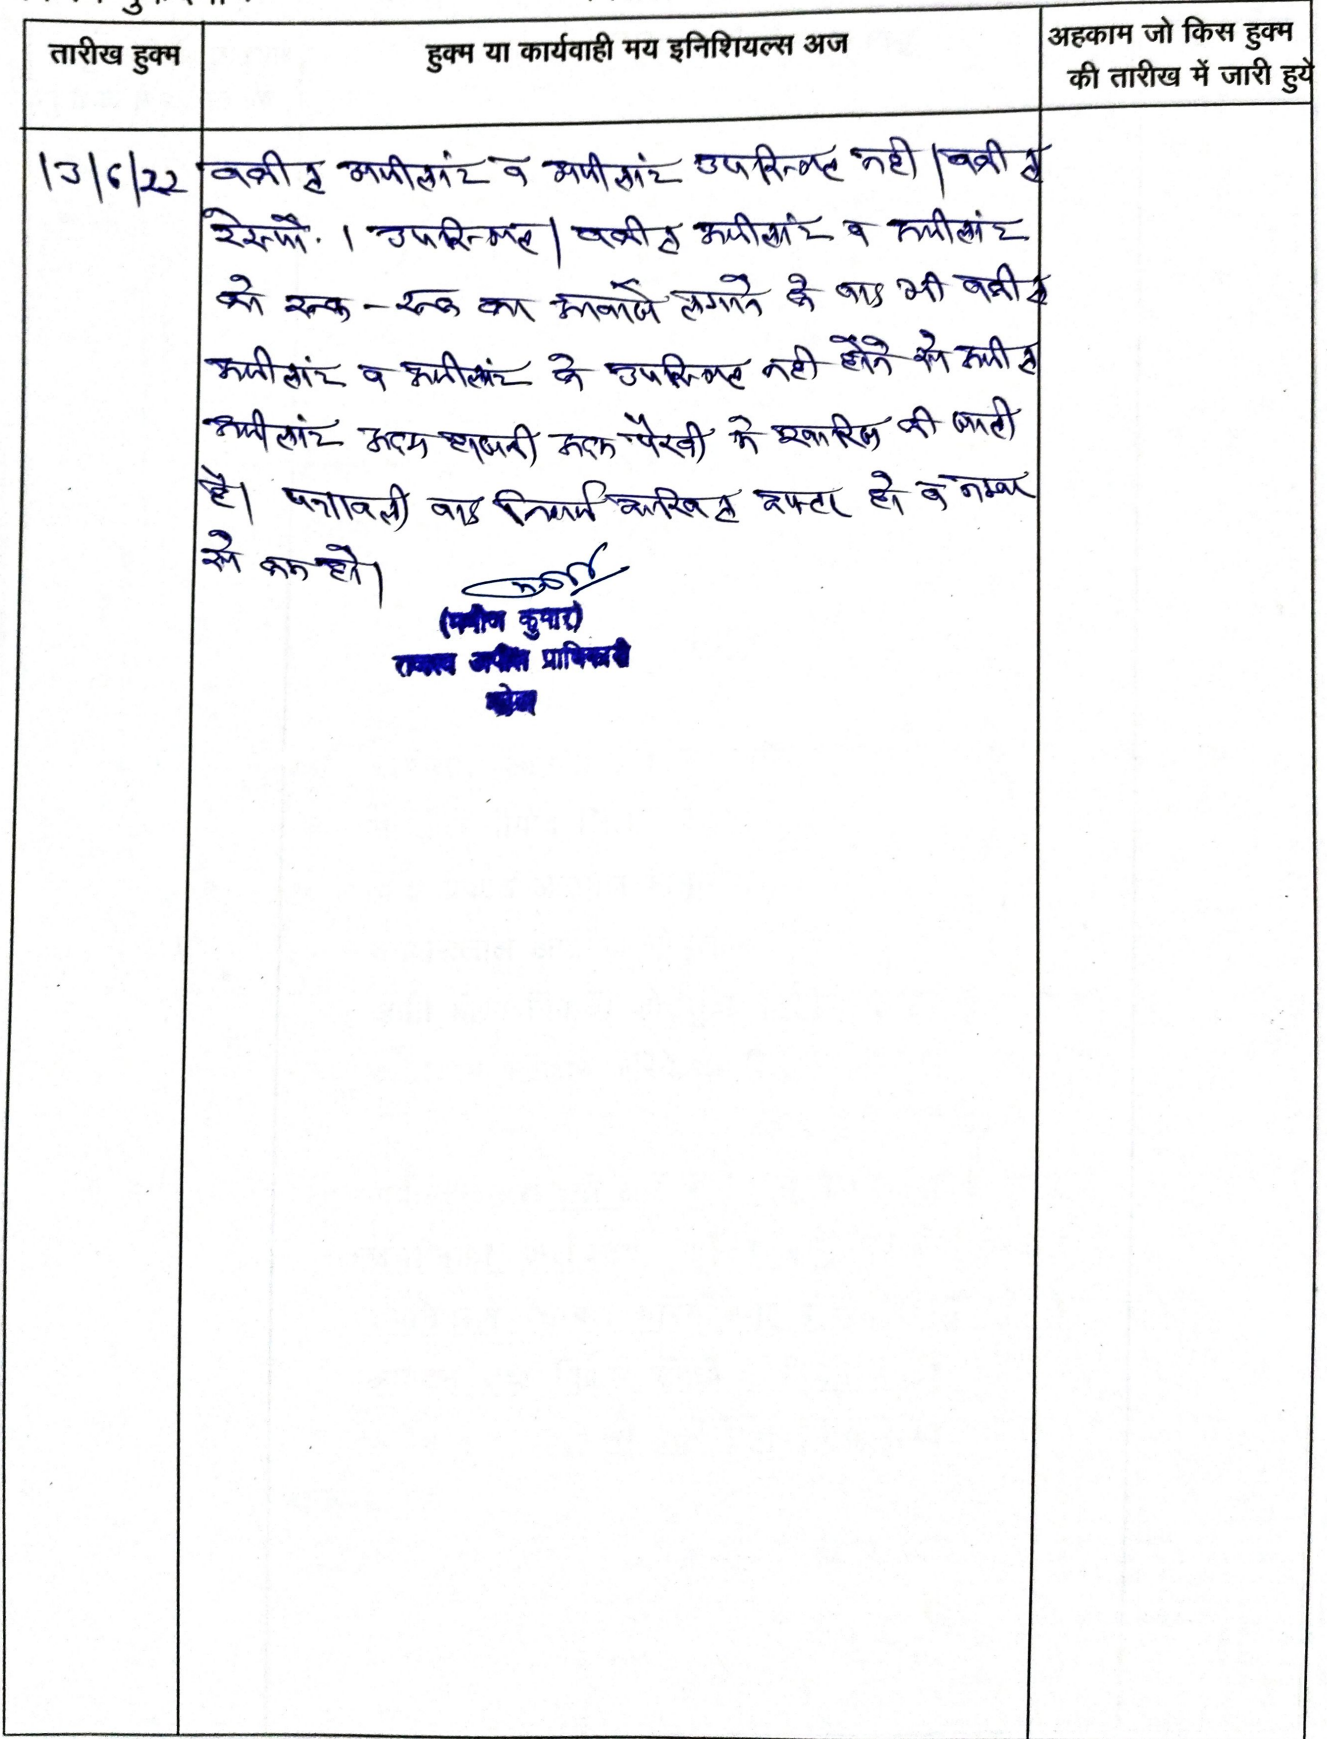 तारीख हुक्म
हुक्म या कार्यवाही मय इनिशियल्स अज
अहकाम जो किस हुक्म
की तारीख में जारी हुये
13/6/22 वकील अपीलांट व अपीलांट उपस्थित नही। वकील
रेस्पों. 1 उपस्थित। वकील अपीलांट व अपीलांट
को रूक-रूक कर आवाजें लगाने के बाद भी वकील
अपीलांट व अपीलांट के उपस्थित नही होने से अपील
अपीलांट अदम हाजरी अदम पैरवी मे खारिज की जाती
है। पत्रावली बाद निर्णय दाखिल दफ्तर हो व नम्बर
से कम हो।
कुमार)
राजस्व अपील प्राधिकारी